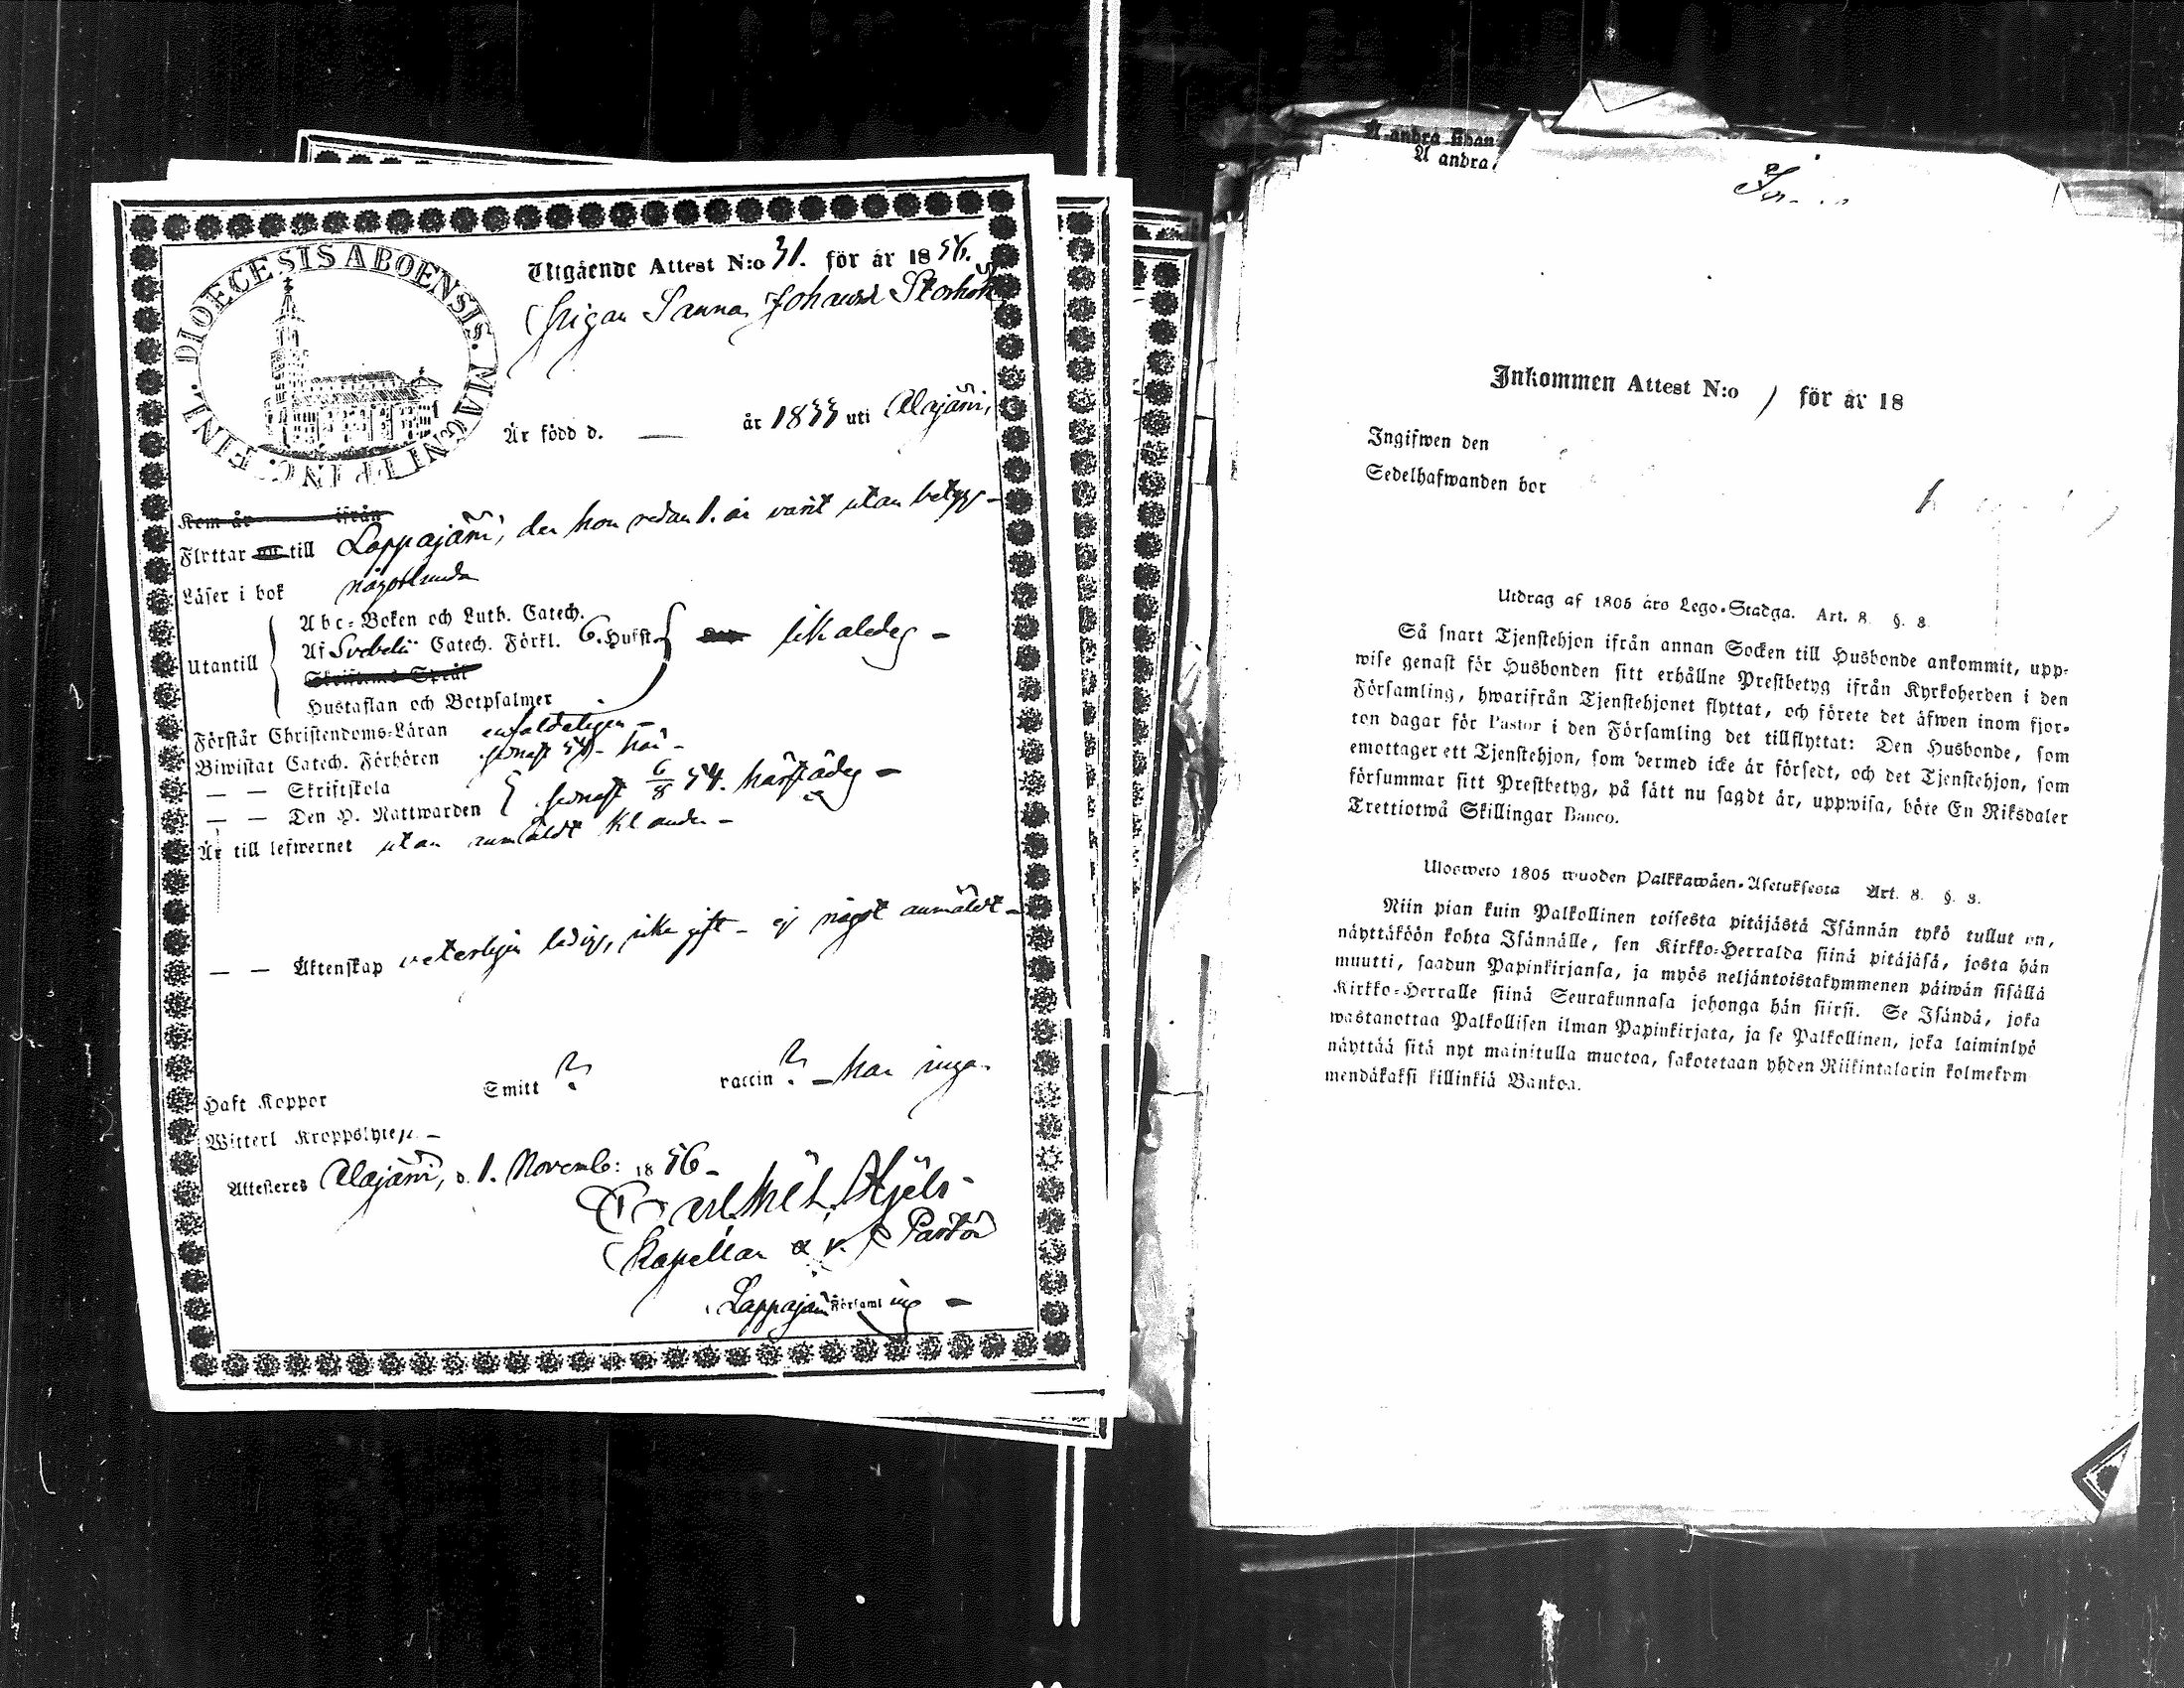 DIOECESIS ABOENSIS. MAGNI PRINC. FINL.
Utgående Attest N:o 31. för år 1856.
Pigan Sanna Johansd Storhok
Är född d. — år 1833 uti Alajärvi,
Kom år ifrån
Flyttar till Lappajärvi, der hon redan 1. år varit utan betyg –
Läser i bok någorlunda
Abc-Boken och Luth. Catech.
Af Svebelii Catech. Förkl. 6. Hufst.
likaledes –
Utantill
Skriftens Språk
Hustaflan och Botpsalmer
Förstår Christendoms-Läran enfaldeligen –
Biwistat Catech. Förhören senast 54 – här –
— — Skriftskola
— — Den H. Nattwarden senast 6/8 54. härstädes –
Är till lefwernet utan anmäldt klander –
— — Äktenskap veterligen ledig, icke gift – ej något anmäldt –
Haft Koppor Smitt ? vaccin ? – har inga
Witterl Kroppslyte –
Attesteres Alajärvi, d. 1. Novemb: 1856 –
Kapellan & v. Pastor
Lappajärvi Församling –
Å andra sidan
Å andra
Inkommen Attest N:o för år 18
Ingifwen den
Sedelhafwanden bor
Utdrag af 1805 års Lego-Stadga. Art. 8. §. 8.
Så snart Tjenstehjon ifrån annan Socken till Husbonde ankommit, upp-
wise genast för Husbonden sitt erhållne Prestbetyg ifrån Kyrkoherden i den
Församling, hwarifrån Tjenstehjonet flyttat, och förete det äfwen inom fjor-
ton dagar för Pastor i den Församling det tillflyttat: Den Husbonde, som
emottager ett Tjenstehjon, som dermed icke är försedt, och det Tjenstehjon, som
försummar sitt Prestbetyg, på sätt nu sagdt är, uppwisa, böte En Riksdaler
Trettiotwå Skillingar Banco.
Ulosweto 1805 wuoden Palkkawäen-Asetuksesta Art. 8. §. 8.
Niin pian kuin Palkollinen toisesta pitäjästä Isännän tykö tullut on,
näyttäköön kohta Isännälle, sen Kirkko-Herralda siinä pitäjäsä, josta hän
muutti, saadun Papinkirjansa, ja myös neljäntoistakymmenen päiwän sisällä
Kirkko-Herralle siinä Seurakunnasa johonga hän siirsi. Se Isändä, joka
wastanottaa Palkollisen ilman Papinkirjata, ja se Palkollinen, joka laiminlyö
näyttää sitä nyt mainitulla muotoa, sakotetaan yhden Riikintalarin kolmekym
mendäkaksi killinkiä Bankoa.